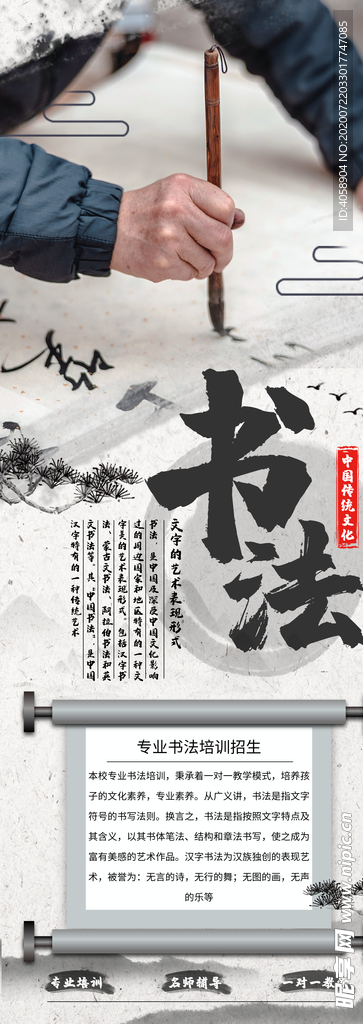 ID:4058904 NO:20200722033017747085
书法
中国传统文化
文字的艺术表现形式
书法,是中国及深受中国文化影响
过的周边国家和地区特有的一种文
字美的艺术表现形式。包括汉字书
法、蒙古文书法、阿拉伯书法和英
文书法等。其"中国书法",是中国
汉字特有的一种传统艺术
专业书法培训招生
本校专业书法培训,秉承着一对一教学模式,培养孩
子的文化素养,专业素养。从广义讲,书法是指文字
符号的书写法则。换言之,书法是指按照文字特点及
其含义,以其书体笔法、结构和章法书写,使之成为
富有美感的艺术作品。汉字书法为汉族独创的表现艺
术,被誉为:无言的诗,无行的舞;无图的画,无声
的乐等
专业培训
名师辅导
一对一教
昵享网 www.nipic.cn